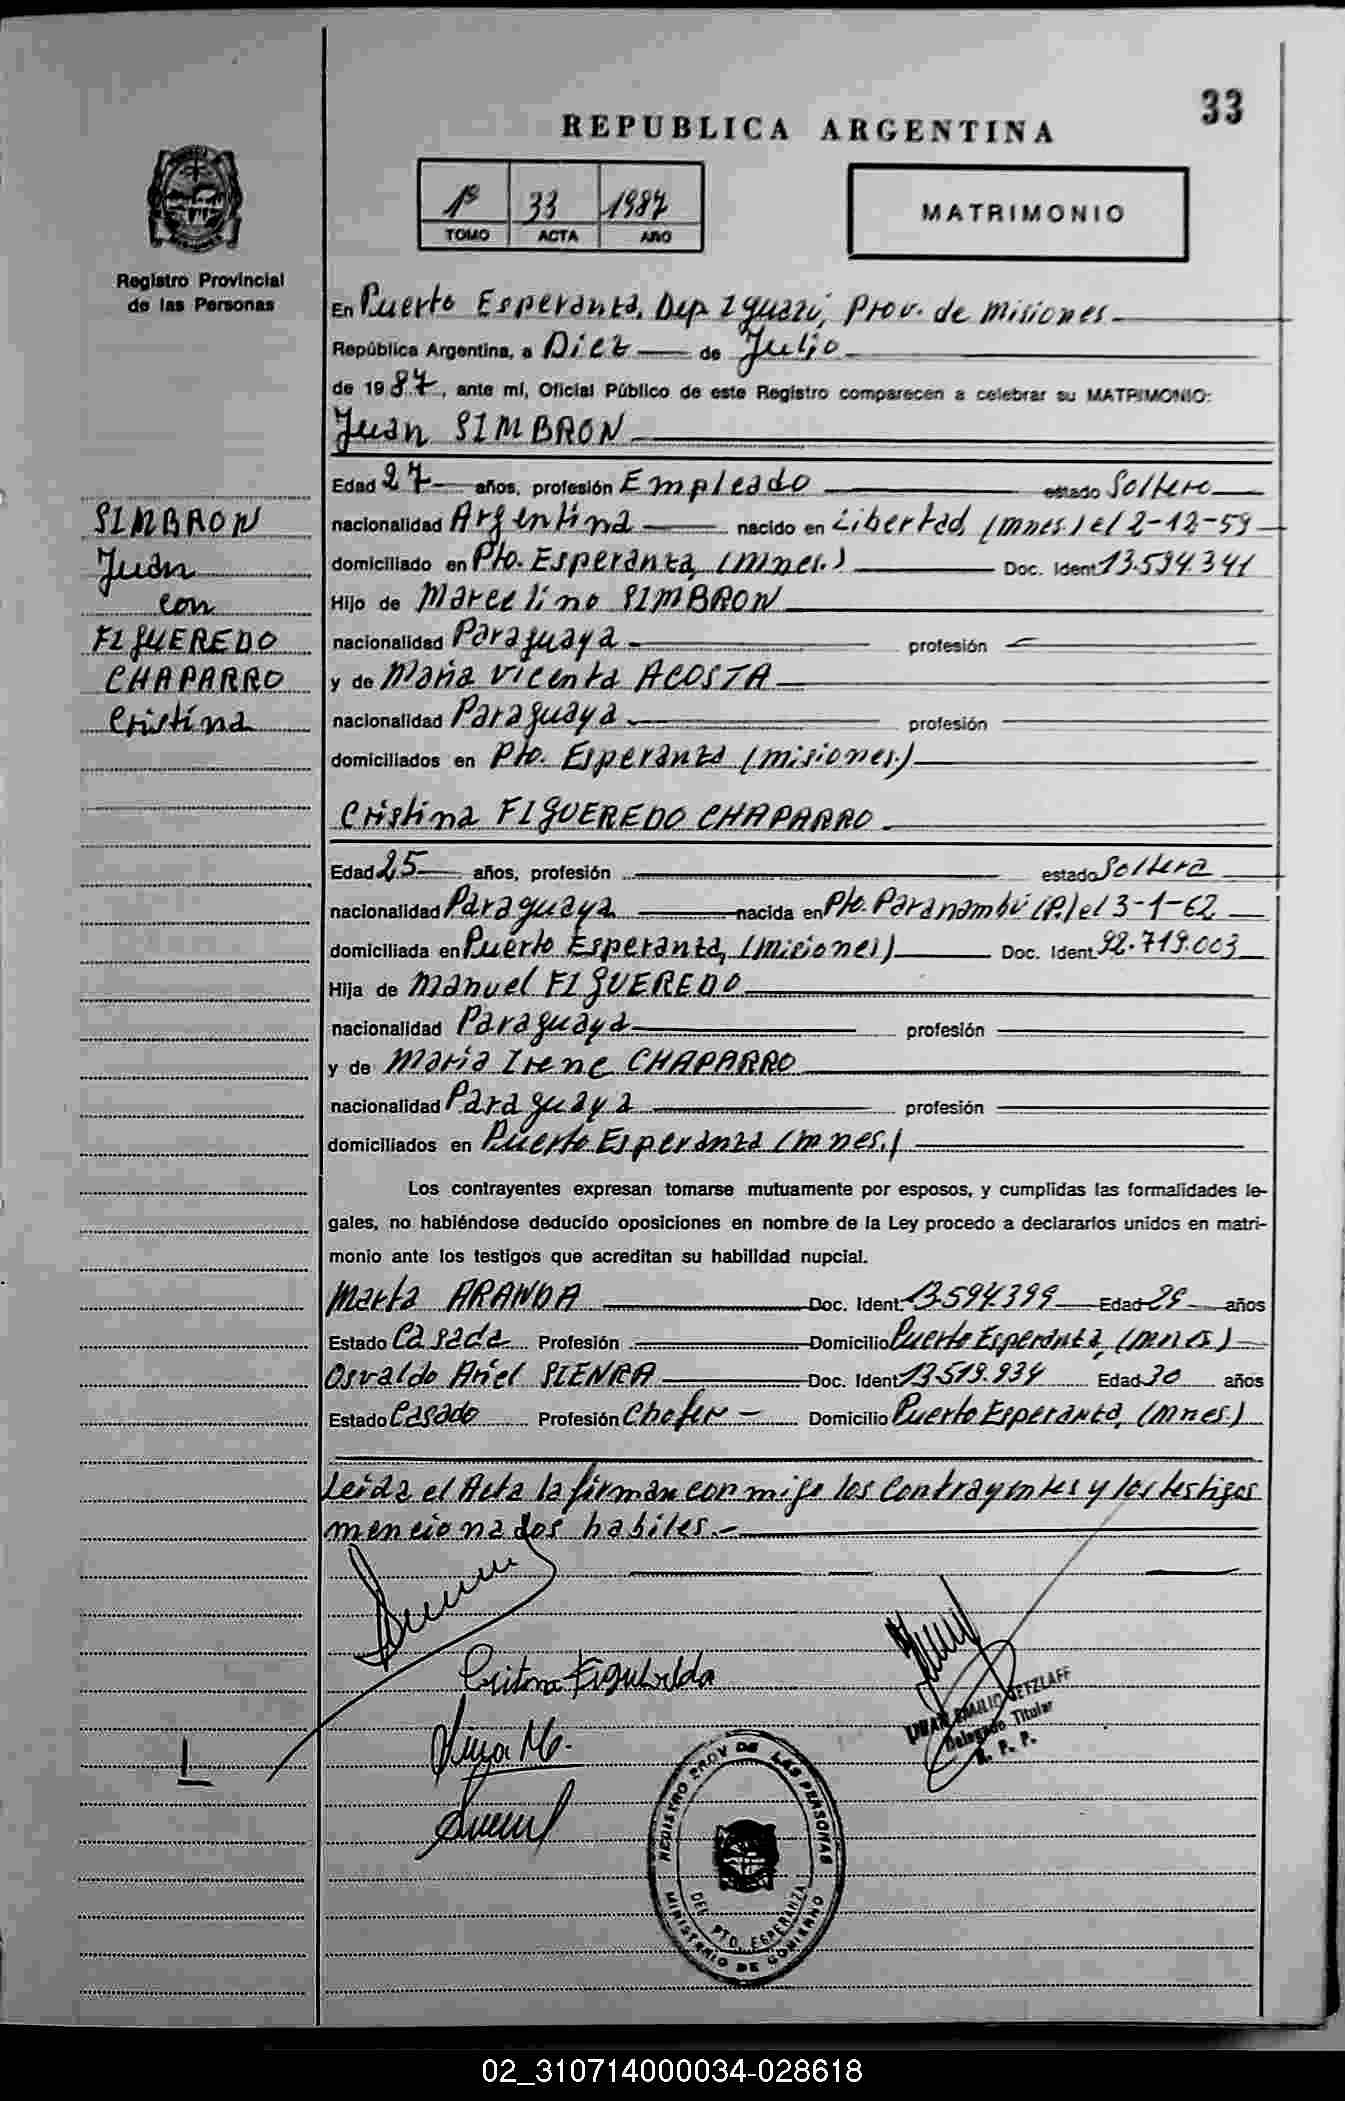 33
REPUBLICA ARGENTINA
1º 33 1987
TOMO ACTA AÑO
MATRIMONIO
Registro Provincial
de las Personas
En Puerto Esperanza, Dep. Iguazú, Prov. de Misiones
República Argentina, a Diez de Julio
de 1987, ante mí, Oficial Público de este Registro comparecen a celebrar su MATRIMONIO:
Juan SIMBRON
Edad 27 años, profesión Empleado estado Soltero
nacionalidad Argentina nacido en Libertad, (mnes.) el 2-12-59
domiciliado en Pto. Esperanza, (mnes.) Doc. Ident. 13.594.341
Hijo de Marcelino SIMBRON
nacionalidad Paraguaya profesión
y de María Vicenta ACOSTA
nacionalidad Paraguaya profesión
domiciliados en Pto. Esperanza (misiones.)
SIMBRON
Juan
con
FIGUEREDO
CHAPARRO
Cristina
Cristina FIGUEREDO CHAPARRO
Edad 25 años, profesión estado Soltera
nacionalidad Paraguaya nacida en Pto. Paranambú (P.) el 3-1-62
domiciliada en Puerto Esperanza, (misiones) Doc. Ident. 92.719.003
Hija de Manuel FIGUEREDO
nacionalidad Paraguaya profesión
y de María Irene CHAPARRO
nacionalidad Paraguaya profesión
domiciliados en Puerto Esperanza (mnes.)
Los contrayentes expresan tomarse mutuamente por esposos, y cumplidas las formalidades le-
gales, no habiéndose deducido oposiciones en nombre de la Ley procedo a declararlos unidos en matri-
monio ante los testigos que acreditan su habilidad nupcial.
Marta ARANDA Doc. Ident. 13.594.399 Edad años
Estado Casada Profesión Domicilio Puerto Esperanza, (mnes.)
Osvaldo Ariel SIENRA Doc. Ident. 13.519.934 Edad 30 años
Estado Casado Profesión Chofer - Domicilio Puerto Esperanza, (mnes.)
Leída el Acta la firman conmigo los Contrayentes y los testigos
mencionados habiles.-
JUAN EMILIO RETZLAFF
Delegado Titular
R. P. P.
REGISTRO PROV DE LAS PERSONAS
DEL. PTO. ESPERANZA
MINISTERIO DE GOBIERNO
02_310714000034-028618